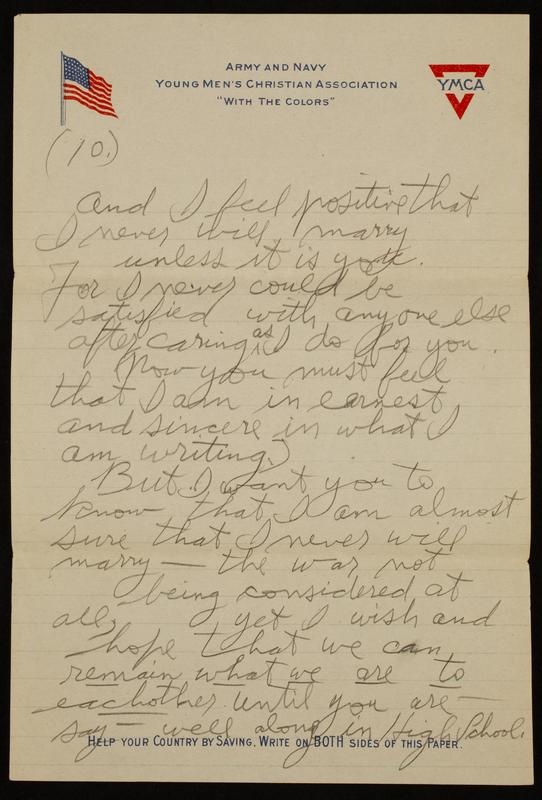 ARMY AND NAVY
YOUNG MEN'S CHRISTIAN ASSOCIATION
"WITH THE COLORS"
YMCA
(10.)
And I feel positive that
I never will marry
unless it is you.
For I never could be
satisfied with anyone else
after caring as I do for you.
Now you must feel
that I am in earnest
and sincere in what I
am writing.
But I want you to
know that I am almost
sure that I never will
marry — the war not
being considered at
all, yet I wish and
hope that we can
remain what we are to
eachother until you are —
say — well along in High School.
HELP YOUR COUNTRY BY SAVING. WRITE ON BOTH SIDES OF THIS PAPER.